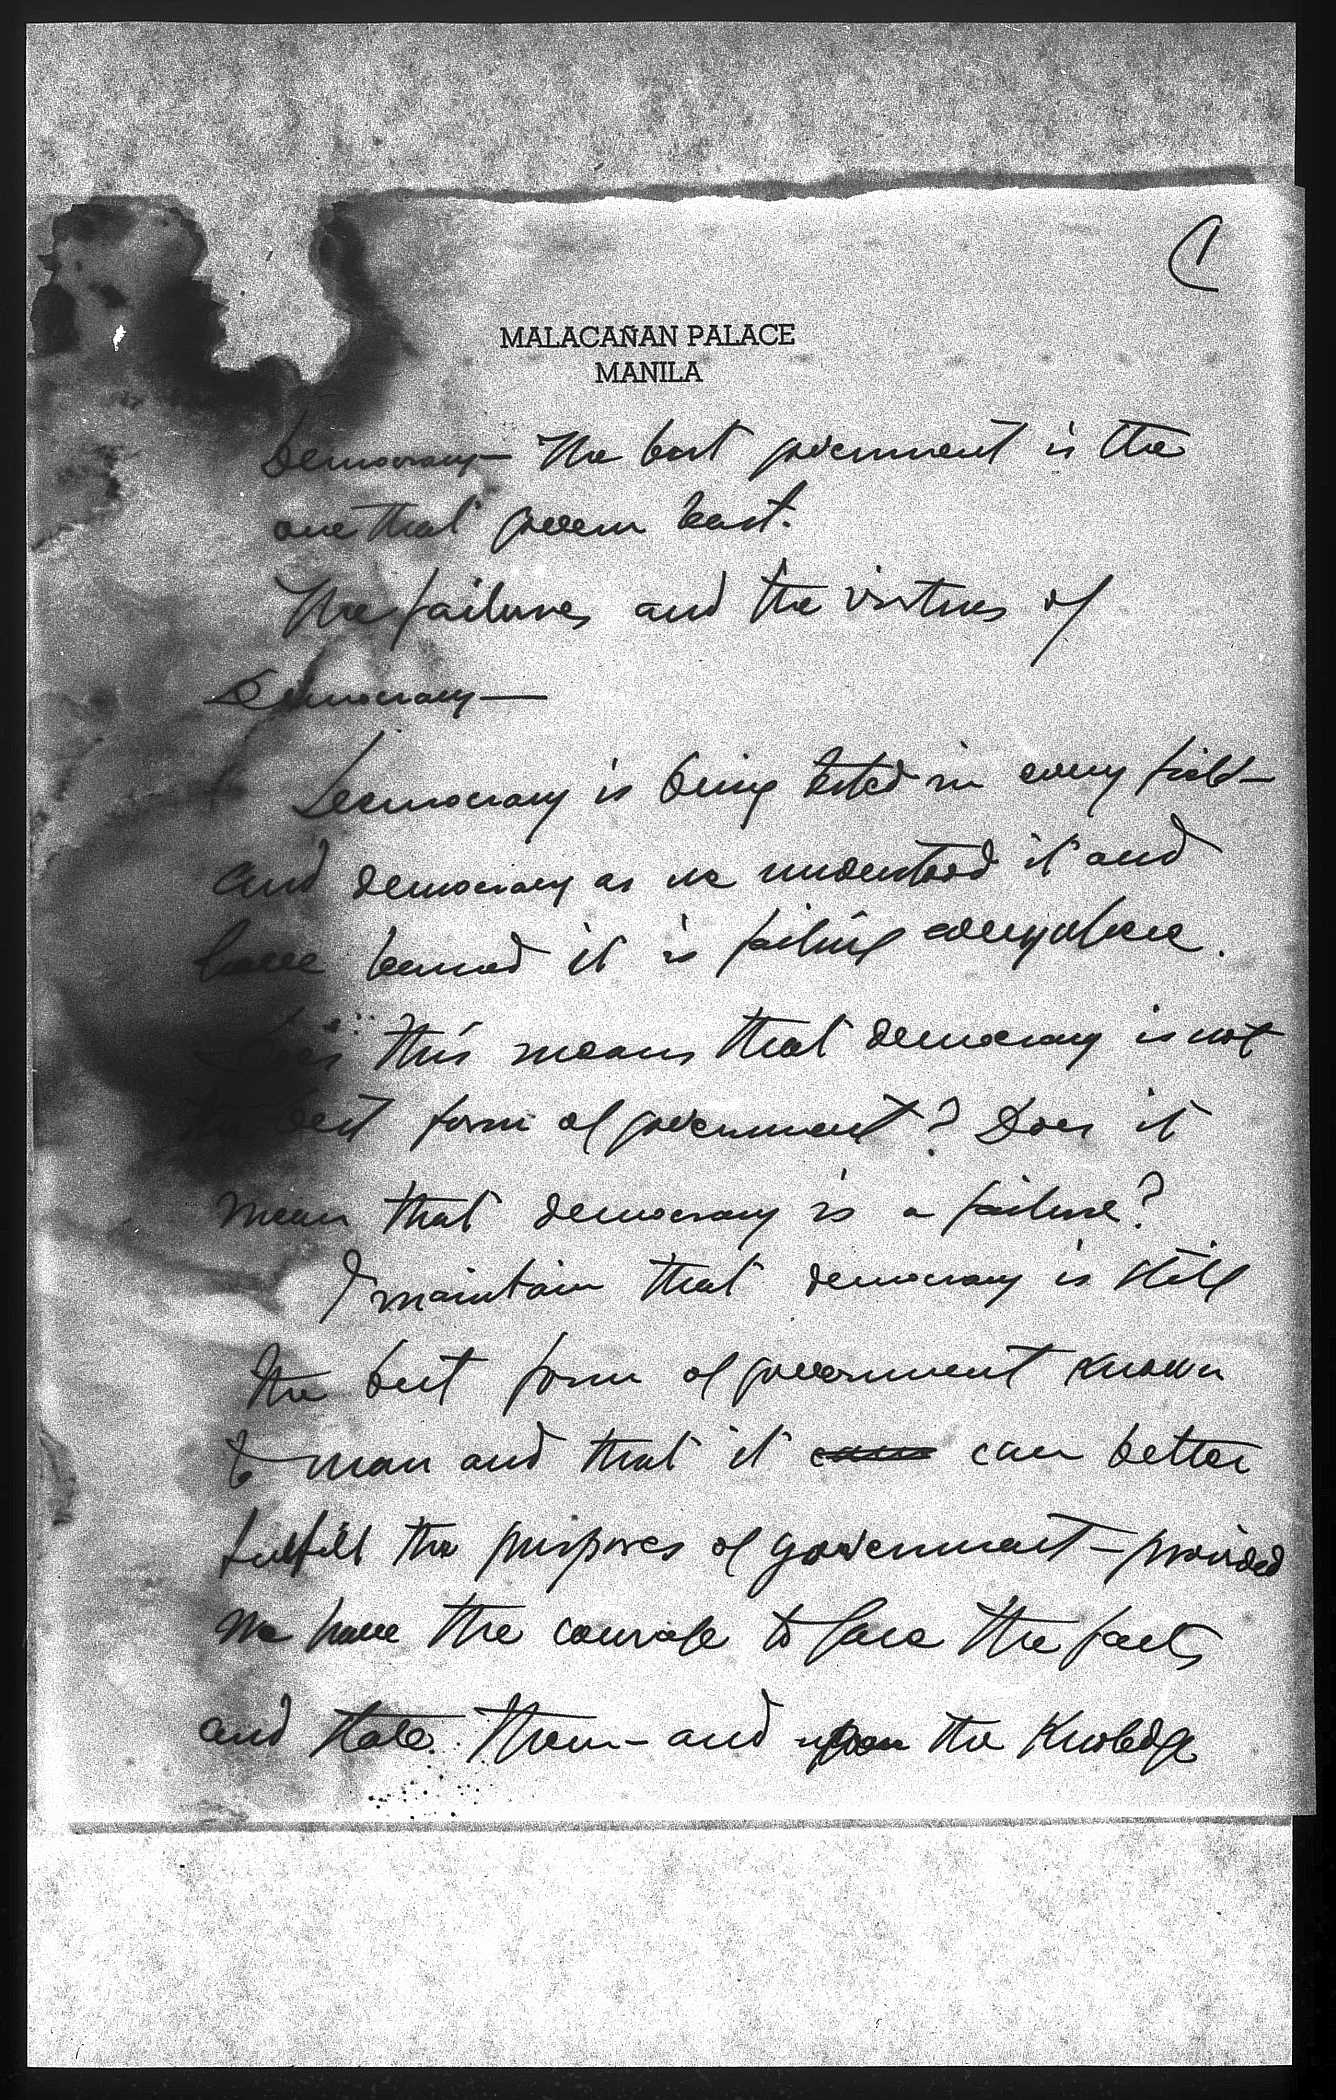 C
MALACAÑAN PALACE
MANILA
Democracy— The best government is the
one that govern least.
The failures and the virtues of
Democracy—
Democracy is being tested in every field—
and democracy as we understood it and
have learned it is failing everywhere.
Does this means that democracy is not
the best form of government? Does it
mean that democracy is a failure?
I maintain that democracy is still
the best form of government known
to man and that it can better
fulfill the purposes of government—provided
we have the courage to face the facts
and state them—and upon the knowledge